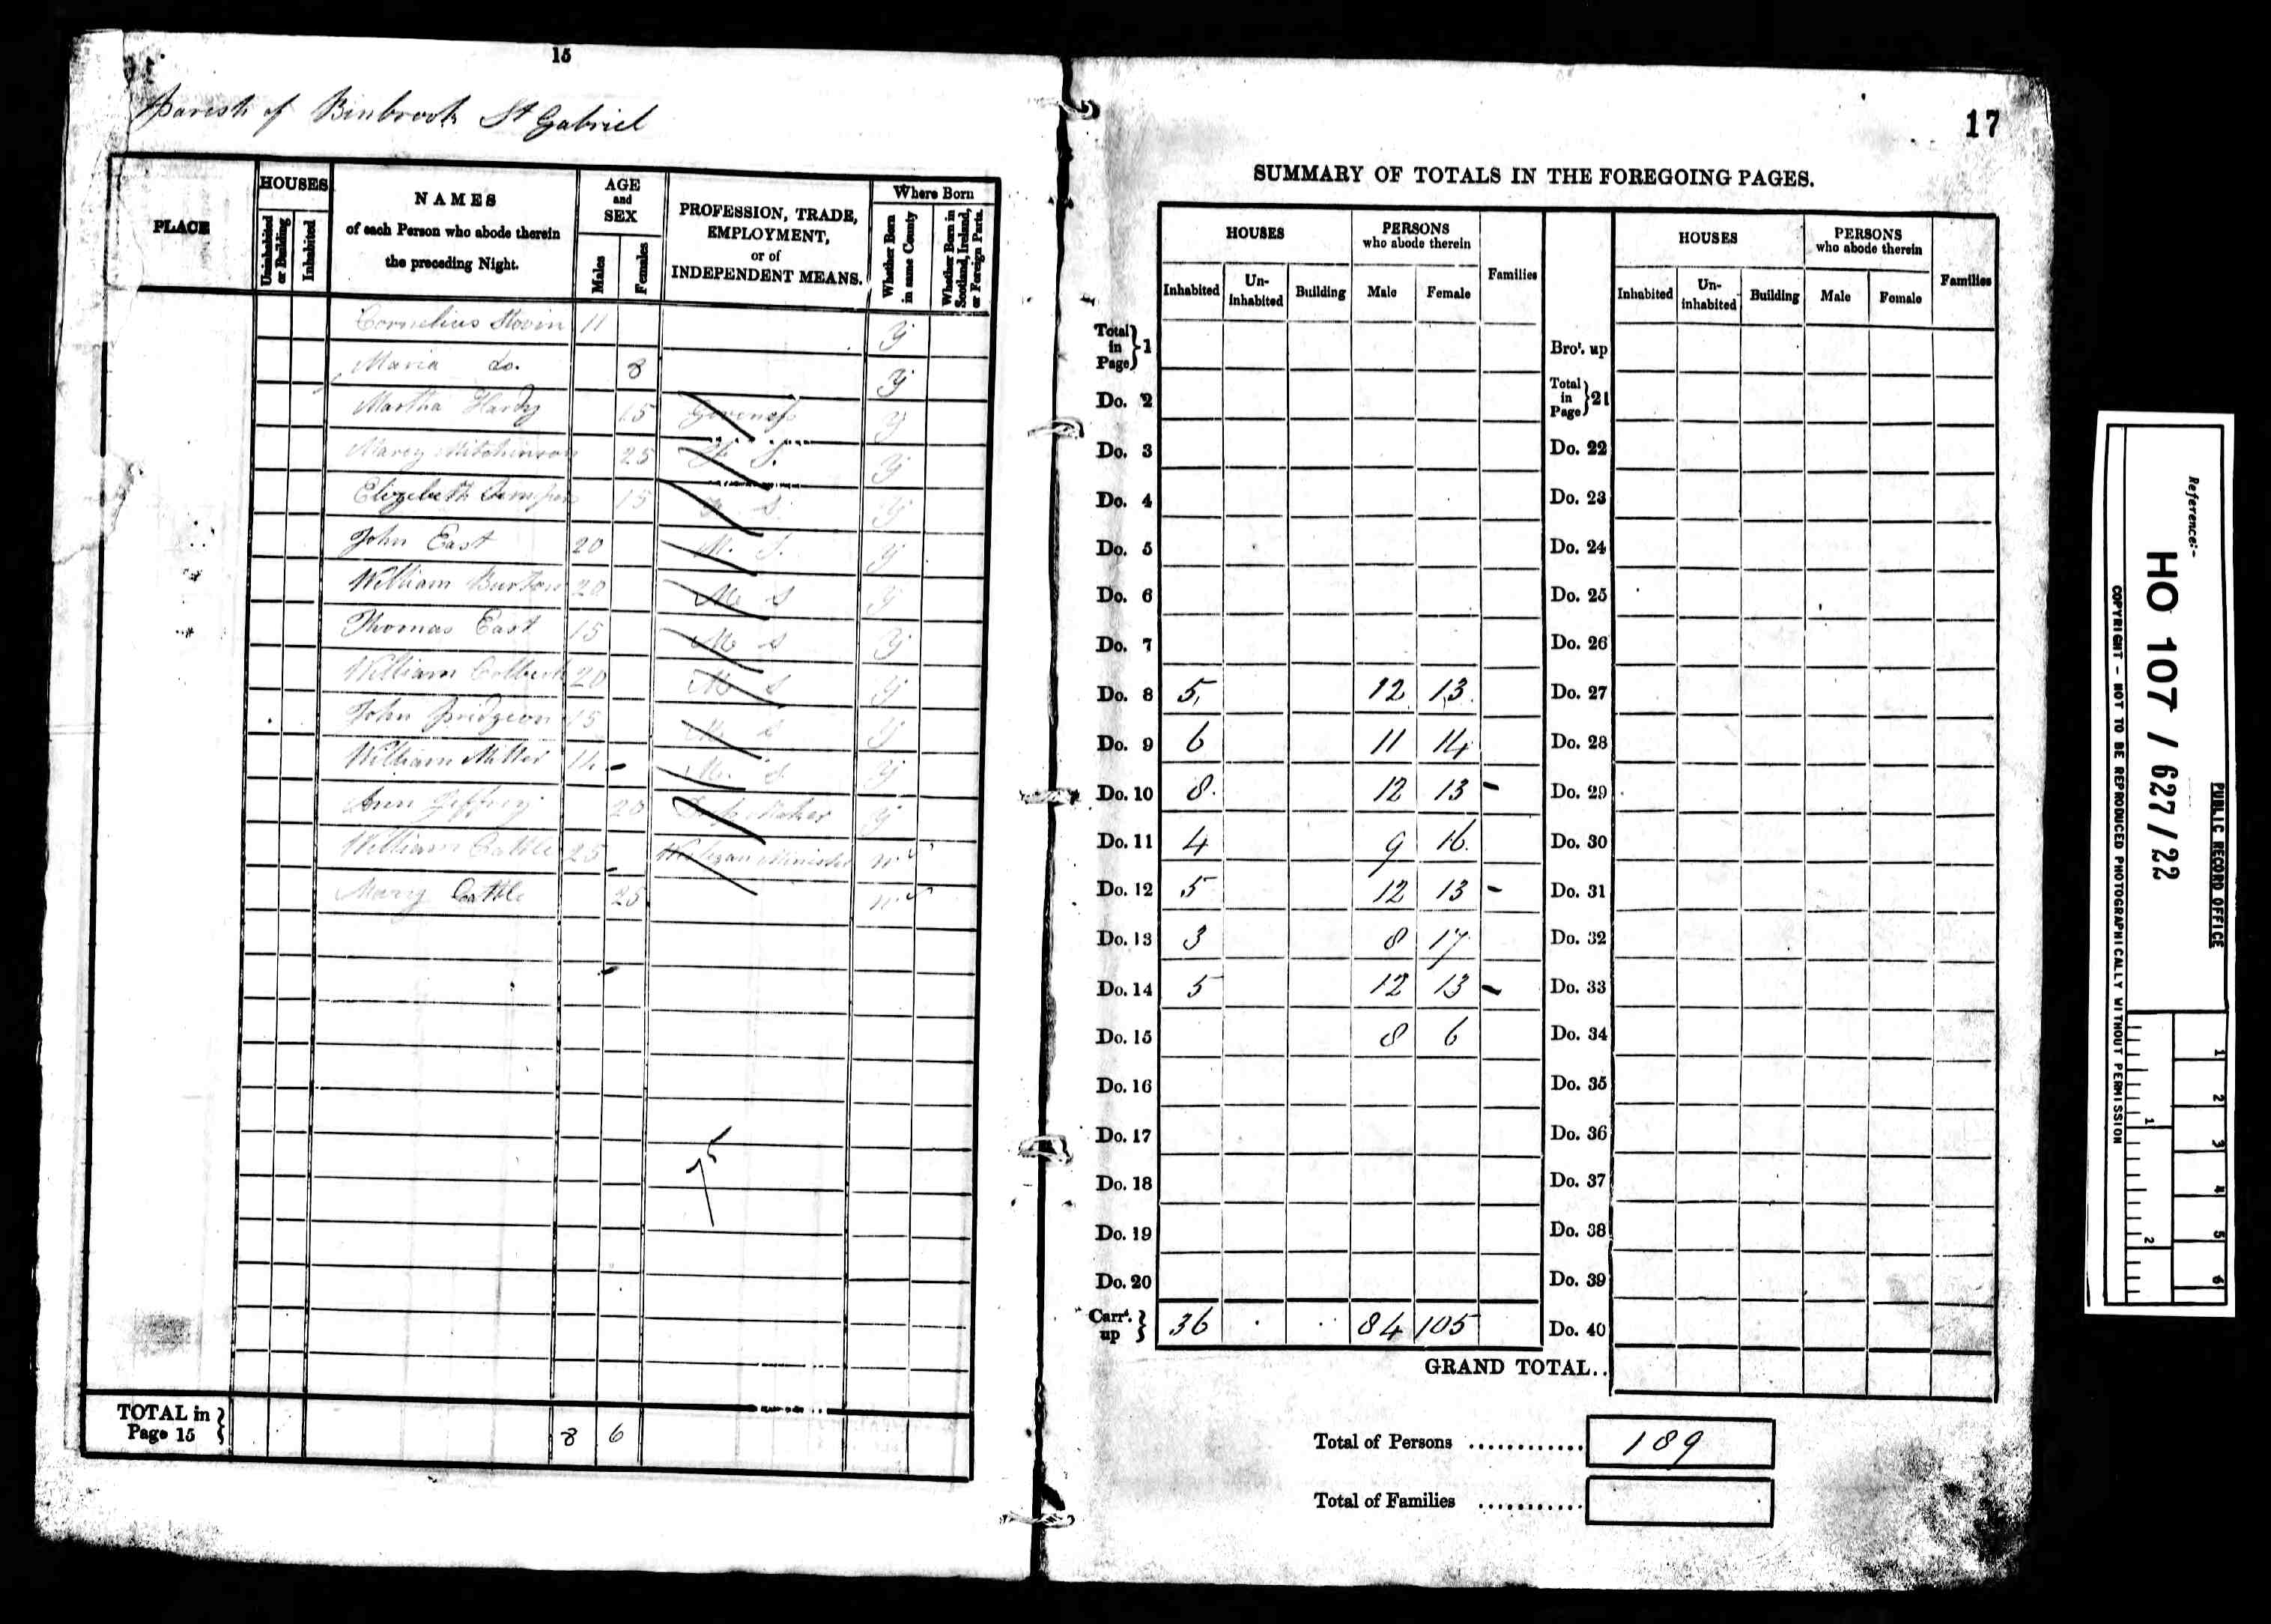 15
Parish of Binbrook St Gabriel
PLACE
HOUSES
Uninhabited or Building
Inhabited
NAMES
of each Person who abode therein
the preceding Night.
AGE
and
SEX
Males
Females
PROFESSION, TRADE,
EMPLOYMENT,
or of
INDEPENDENT MEANS.
Where Born
Whether Born in same County
Whether Born in Scotland, Ireland, or Foreign Parts.
Cornelius Stovin 11 y
Maria Do. 8 y
Martha Hardy 15 Governess y
Marey Mitchinson 25 F. S. y
Elizebeth 15 F. S. y
John East 20 M. S. y
William Burton 20 M S y
Thomas East 15 M S y
William 20 M S y
John 15 M S y
William Miller 14 M. S. y
Ann Jeffrey 20 Maker y
William Cattle 25 Wesleyan Minister n
Marey Cattle 25 n
TOTAL in
Page 15 } 8 6
17
SUMMARY OF TOTALS IN THE FOREGOING PAGES.
HOUSES PERSONS who abode therein Families HOUSES PERSONS who abode therein Families
Inhabited Un-inhabited Building Male Female Inhabited Un-inhabited Building Male Female
Total in Page } 1 Brot. up
Do. 2 Total in Page } 21
Do. 3 Do. 22
Do. 4 Do. 23
Do. 5 Do. 24
Do. 6 Do. 25
Do. 7 Do. 26
Do. 8 5 12 13 Do. 27
Do. 9 6 11 14 Do. 28
Do. 10 8 12 13 Do. 29
Do. 11 4 9 16 Do. 30
Do. 12 5 12 13 Do. 31
Do. 13 3 8 17 Do. 32
Do. 14 5 12 13 Do. 33
Do. 15 8 6 Do. 34
Do. 16 Do. 35
Do. 17 Do. 36
Do. 18 Do. 37
Do. 19 Do. 38
Do. 20 Do. 39
Carrd. up } 36 84 105 Do. 40
GRAND TOTAL..
Total of Persons ............ 189
Total of Families ...........
PUBLIC RECORD OFFICE
Reference:-
HO 107 / 627/22
COPYRIGHT - NOT TO BE REPRODUCED PHOTOGRAPHICALLY WITHOUT PERMISSION
1 2 3 4 5 6
1 2